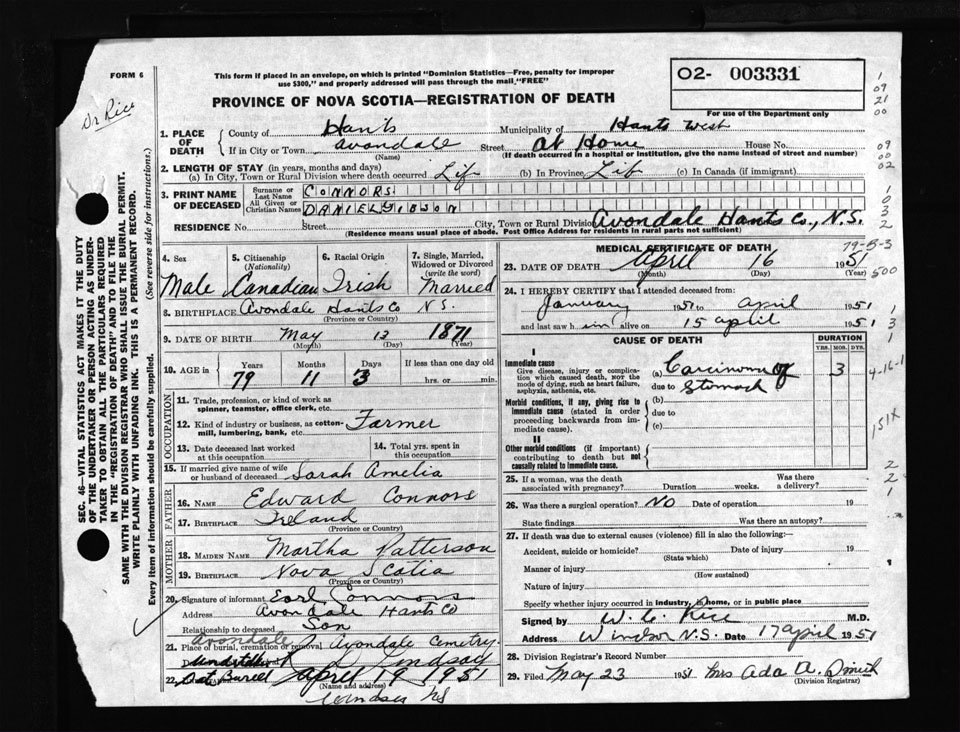 FORM 6
This form if placed in an envelope, on which is printed "Dominion Statistics—Free, penalty for improper
use $300," and properly addressed will pass through the mail "FREE"
02- 003331
For use of the Department only
PROVINCE OF NOVA SCOTIA—REGISTRATION OF DEATH
Dr Rice
1. PLACE OF DEATH
County of Hants Municipality of Hants West
If in City or Town Avondale Street At Home House No.
(Name) (If death occurred in a hospital or institution, give the name instead of street and number)
2. LENGTH OF STAY (in years, months and days)
(a) In City, Town or Rural Division where death occurred Life (b) In Province Life (c) In Canada (if immigrant)
3. PRINT NAME OF DECEASED
Surname or Last Name CONNORS
All Given or Christian Names DANIEL GIBSON
RESIDENCE No. Street City, Town or Rural Division Avondale Hants Co., N.S.
(Residence means usual place of abode. Post Office Address for residents in rural parts not sufficient)
4. Sex 5. Citizenship (Nationality) 6. Racial Origin 7. Single, Married, Widowed or Divorced (write the word)
Male Canadian Irish Married
8. BIRTHPLACE Avondale Hants Co N.S.
(Province or Country)
9. DATE OF BIRTH May 13 1871
(Month) (Day) (Year)
10. AGE in Years Months Days If less than one day old
79 11 3 hrs. or min.
OCCUPATION
11. Trade, profession, or kind of work as spinner, teamster, office clerk, etc.
12. Kind of industry or business, as cotton-mill, lumbering, bank, etc. Farmer
13. Date deceased last worked at this occupation
14. Total yrs. spent in this occupation
15. If married give name of wife or husband of deceased Sarah Amelia
FATHER
16. Name Edward Connors
17. Birthplace Ireland
(Province or Country)
MOTHER
18. Maiden Name Martha Patterson
19. Birthplace Nova Scotia
(Province or Country)
20. Signature of informant Earl Connors
Address Avondale Hants Co
Relationship to deceased Son
Avondale
21. Place of burial, cremation or removal Avondale Cemetry.
Lindsay
22. Dat Buried April 19 1951
(Name and address)
Windsor NS
MEDICAL CERTIFICATE OF DEATH
23. DATE OF DEATH April 16 1951
(Month) (Day) (Year)
24. I HEREBY CERTIFY that I attended deceased from:
January 1951 to April 1951
and last saw him alive on 15 April 1951
CAUSE OF DEATH DURATION
YRS. MOS. DYS.
I
Immediate cause
Give disease, injury or complication which caused death, not the mode of dying, such as heart failure, asphyxia, asthenia, etc.
(a) Carcinoma of 3
due to Stomach
Morbid conditions, if any, giving rise to immediate cause (stated in order proceeding backwards from immediate cause).
(b)
due to
(c)
II
Other morbid conditions (if important) contributing to death but not causally related to immediate cause.
25. If a woman, was the death associated with pregnancy? Duration weeks. Was there a delivery?
26. Was there a surgical operation? No Date of operation 19
State findings Was there an autopsy?
27. If death was due to external causes (violence) fill in also the following:—
Accident, suicide or homicide? Date of injury 19
(State which)
Manner of injury
(How sustained)
Nature of injury
Specify whether injury occurred in industry, in home, or in public place
Signed by W. C. Rice M.D.
Address Windsor N.S. Date 17 April 1951
28. Division Registrar's Record Number
29. Filed May 23 1951 Mrs Ada A. Dimock
(Division Registrar)
SEC. 46—VITAL STATISTICS ACT MAKES IT THE DUTY
OF THE UNDERTAKER OR PERSON ACTING AS UNDERTAKER TO OBTAIN ALL THE PARTICULARS REQUIRED
IN THE "REGISTRATION OF DEATH" AND TO FILE THE
SAME WITH THE DIVISION REGISTRAR WHO SHALL ISSUE THE BURIAL PERMIT.
WRITE PLAINLY WITH UNFADING INK. THIS IS A PERMANENT RECORD.
Every item of information should be carefully supplied. (See reverse side for instructions.)
1
09
21
00
09
00
02
1
0
3
2
79-5-3
500
1
3
1
4-16-1
151X
2
2
1